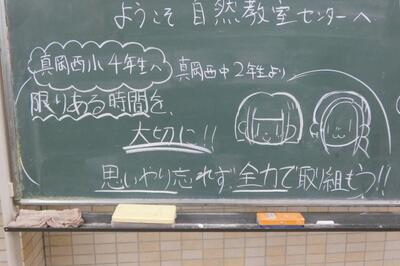 ようこそ 自然教室センターへ
真岡西小4年生へ 真岡西中2年生より
限りある時間を、
大切に!!
思いやり忘れず、全力で取り組もう!!